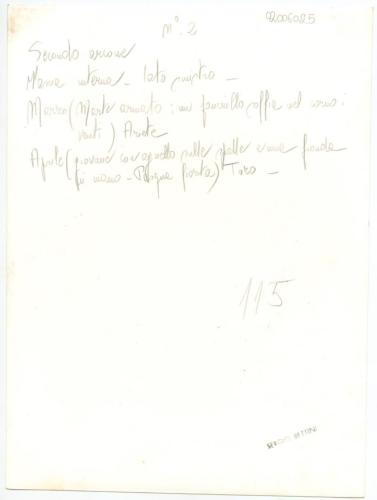 N° 2
92006025
Secondo arcone
interna - lato sinistro -
Marzo (Marte armato: un fanciullo soffia nel corno:
venti) Ariete
Aprile (giovane con agnello sulle spalle e una fionda
in mano - Pasqua fiorita) Toro -
115